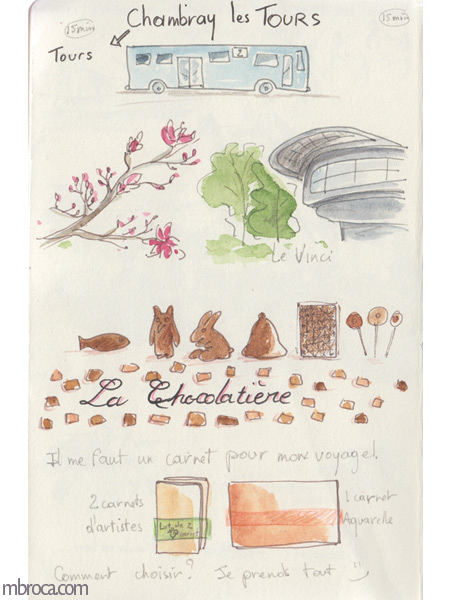 15min
15min
Chambray les TOURS
Tours
2
Le Vinci
La Chocolatière
Il me faut un carnet pour mon voyage!
2 carnets
d'artistes
Lot de 2
carnet
1 carnet
Aquarelle
Comment choisir? Je prends tout
mbroca.com